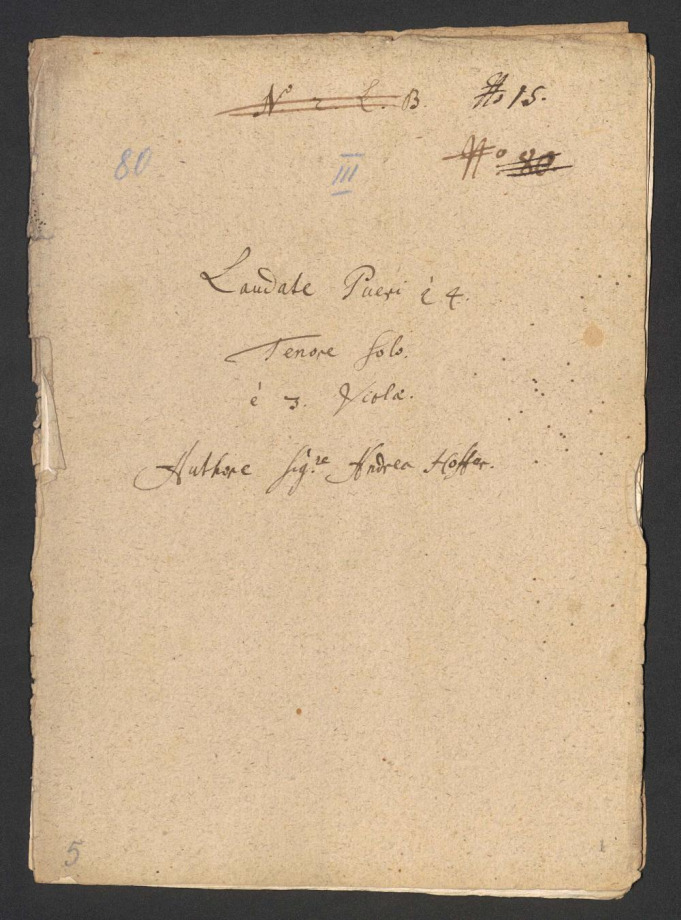 No 2. L. B. No 15.
80 III No 80
Laudate Pueri è 4.
Tenore Solo.
è 3. Violæ.
Authore Sig:re Andrea Hoffer.
5 1